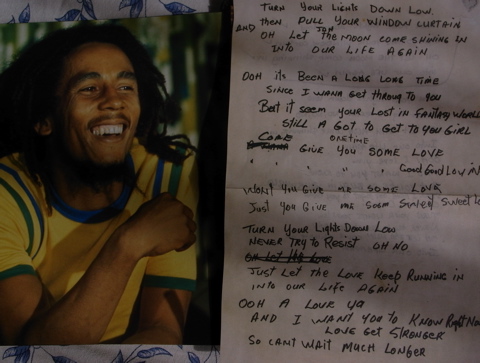 TURN YOUR LIGHTS DOWN LOW.
then PULL YOUR WINDOW CURTAIN
AND OH LET THE MOON COME SHINING IN
INTO OUR LIFE AGAIN
OOH its BEEN A LONG LONG TIME
SINCE I WANA GET THROUG TO YOU
But it seem your Lost in FANTASY WORLD
STILL A GOT TO GET TO YOU GIRL
COME ONE TIME
GIVE YOU SOME LOVE
" " " " Good Good Lovin
WONT YOU GIVE ME SOME LOVE
Just you GIVE ME SOEM SWEET SWEET Lo
TURN YOUR Lights Down Low
NEVER TRY to Resist OH NO
OH LET the Love
JUST LET THE LOVE KEEP RUNNING IN
INTO OUR LIFE AGAIN
OOH A LOVE YA
AND I WANT YOU TO KNOW Right Now
LOVE GET STRONGER
SO CANT WAIT MUCH LONGER